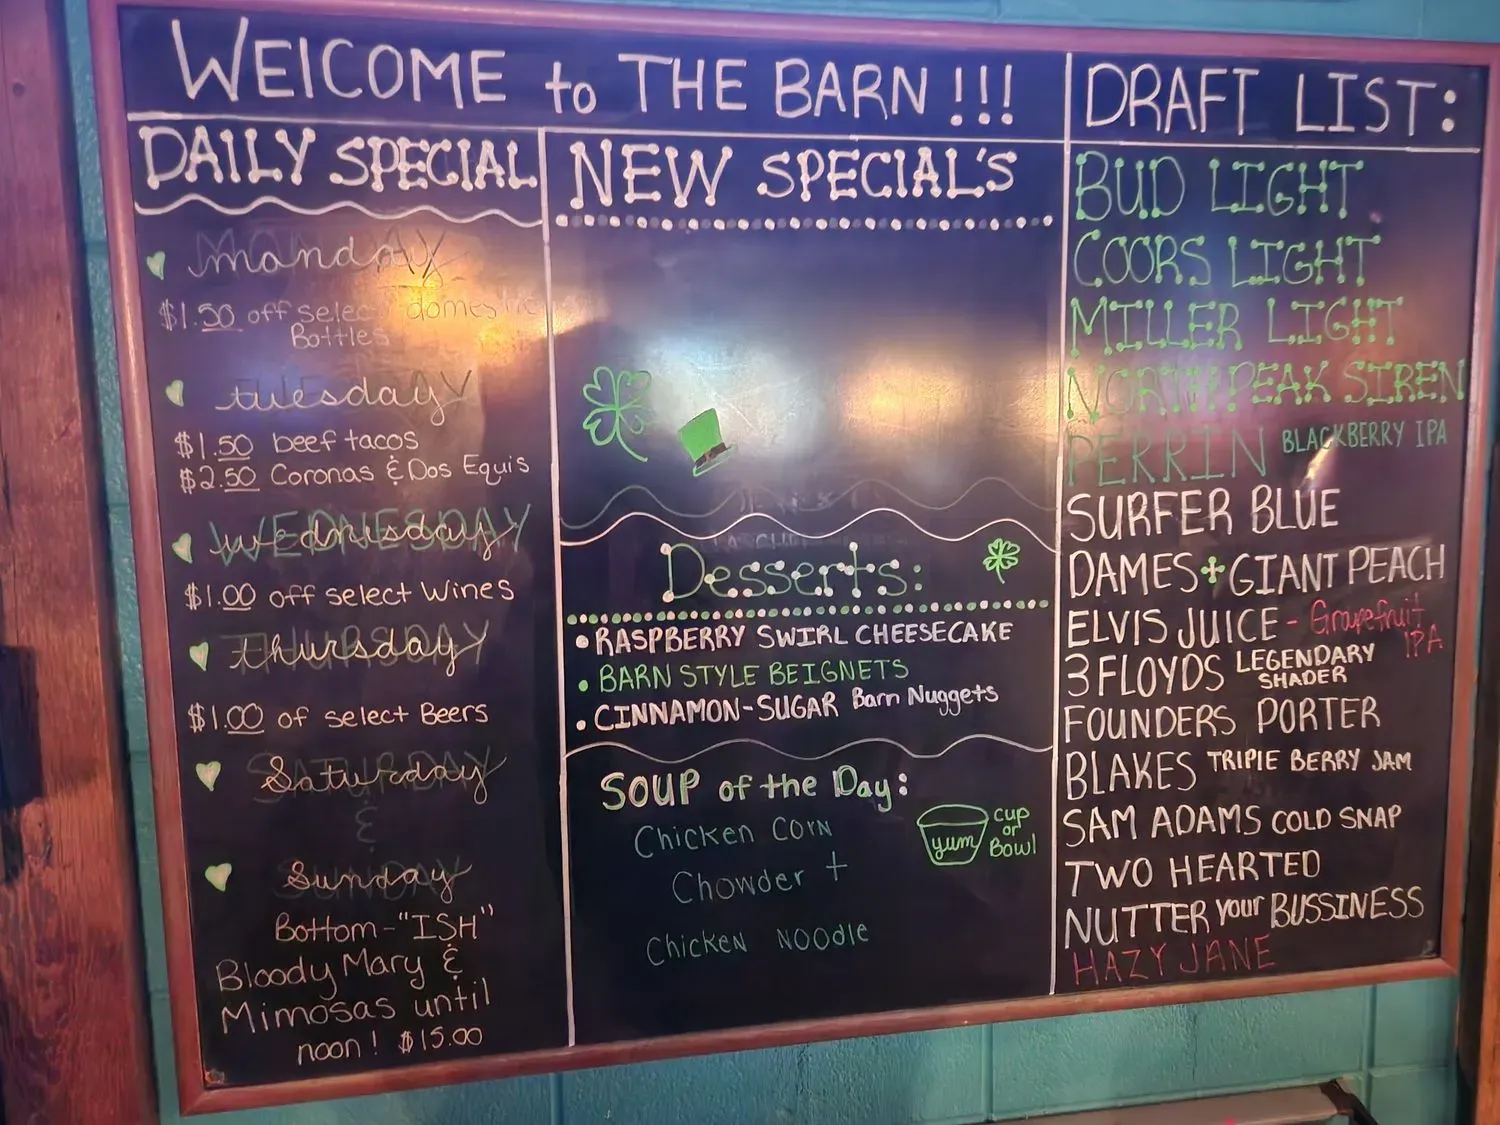 WELCOME to THE BARN!!!
DAILY SPECIAL
monday
$1.50 off select domestic
Bottles
tuesday
$1.50 beef tacos
$2.50 Coronas & Dos Equis
wednesday
$1.00 off select Wines
thursday
$1.00 of select Beers
Saturday
&
Sunday
Bottom-"ISH"
Bloody Mary &
Mimosas until
noon! $15.00
NEW SPECIAL'S
Desserts:
• RASPBERRY SWIRL CHEESECAKE
• BARN STYLE BEIGNETS
• CINNAMON-SUGAR Barn Nuggets
SOUP of the Day:
Chicken Corn
Chowder +
Chicken Noodle
yum
cup
or
Bowl
DRAFT LIST:
BUD LIGHT
COORS LIGHT
MILLER LIGHT
NORTH PEAK SIREN
PERRIN BLACKBERRY IPA
SURFER BLUE
DAMES + GIANT PEACH
ELVIS JUICE - Grapefruit
IPA
3 FLOYDS LEGENDARY
SHADER
FOUNDERS PORTER
BLAKES TRIPIE BERRY JAM
SAM ADAMS COLD SNAP
TWO HEARTED
NUTTER your BUSSINESS
HAZY JANE